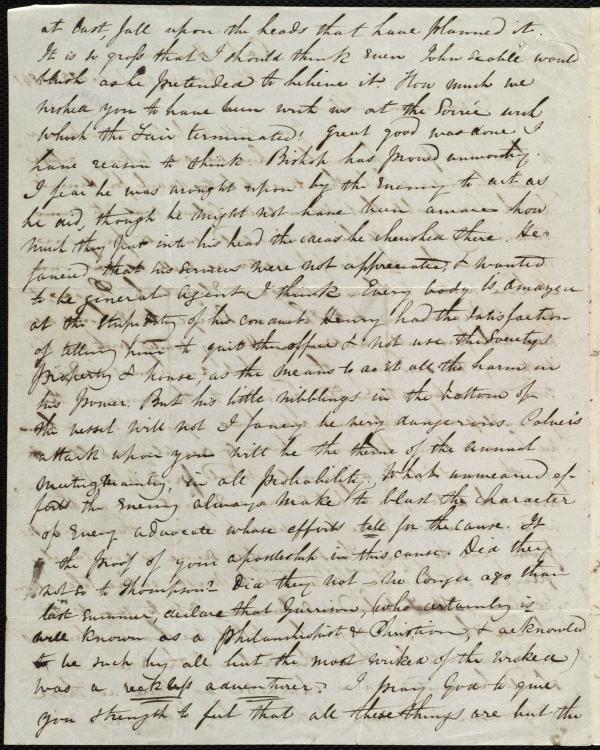 at last, fall upon the heads that have planned it.
It is so gross that I should think even John Scoble would
blush as he pretended to believe it. How much we
wished you to have been with us at the Soirée with
which the Fair terminated! great good was done I
have reason to think. Bishop has proved unworthy.
I fear he was wrought upon by the Enemy to act as
he did, though he might not have been aware how
much they put into his head the ideas he cherished there. He
fancied that his services were not appreciated, & wanted
to be general agent I think. Every body is amazed
at the stupidity of his conduct. Henry had the satisfaction
of telling him to quit the office & not use the Society's
property & house, as the means to do it all the harm in
his power. But his little nibblings in the bottom of
the vessel will not I fancy be very dangerous.
attack upon you will be the theme of the annual
meeting mainly, in all probability. What unwearied ef-
forts the Enemy always make to blast the character
of every advocate whose efforts tell for the cause. It
is the proof of your apostleship in this cause. Did they
not so to Thompson? Did they not – no longer ago than
last summer, declare that Garrison, (who certainly is
well known as a Philanthropist & Christian, & acknowledged
to be such by all but the most wicked of the wicked)
was a reckless adventurer? I pray God to give
you strength to feel that all these things are but the